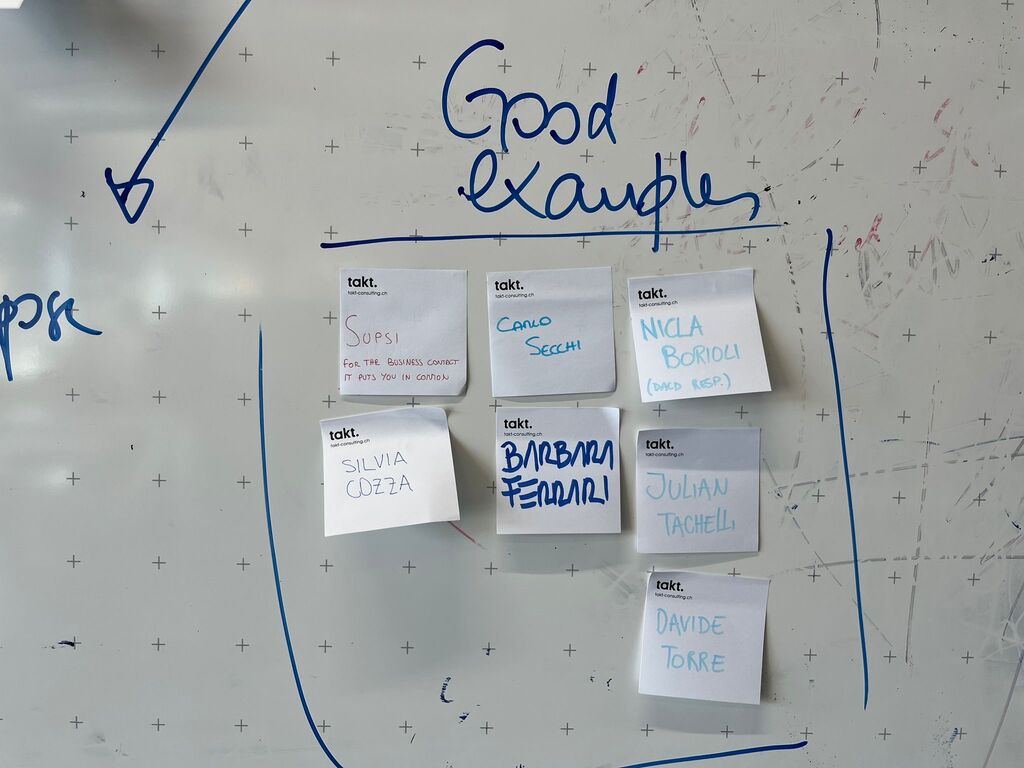 Good
examples
takt.
takt-consulting.ch
SUPSI
FOR THE BUSINESS CONTECT
IT PUTS YOU IN CONTION
takt.
takt-consulting.ch
CARLO
SECCHI
takt.
takt-consulting.ch
NICLA
BORIOLI
(DACD RESP.)
takt.
takt-consulting.ch
SILVIA
COZZA
takt.
takt-consulting.ch
BARBARA
FERRARI
takt.
takt-consulting.ch
JULIAN
TACHELLI
takt.
takt-consulting.ch
DAVIDE
TORRE